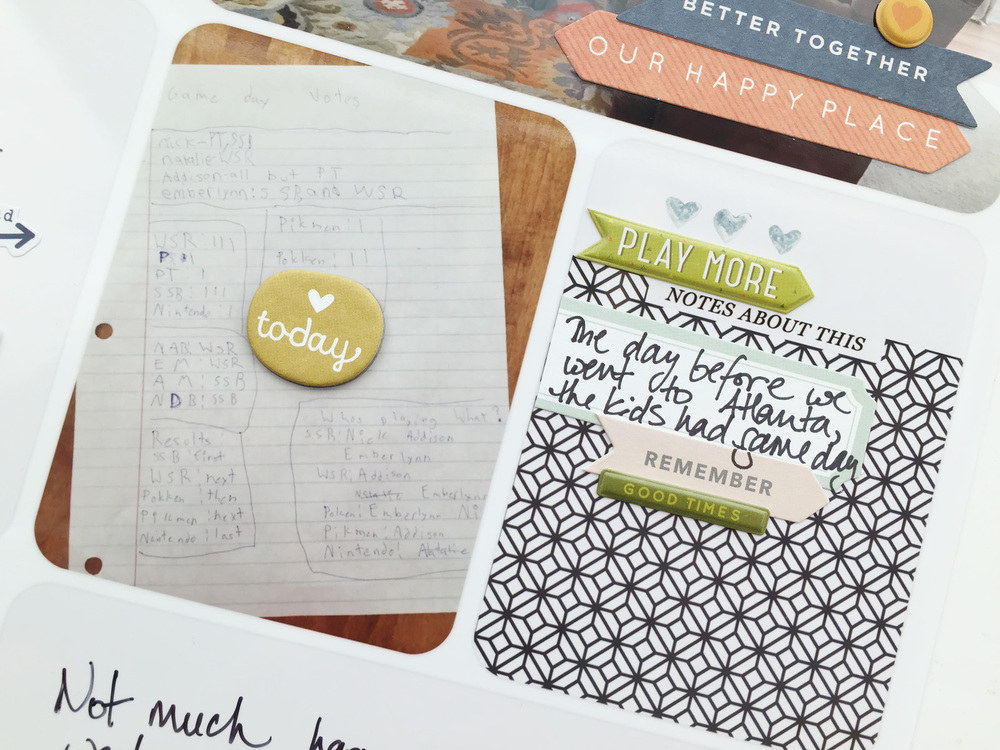 BETTER TOGETHER
OUR HAPPY PLACE
d
Game day Votes
nick-PT,SSB
natalie WSR
Addison-all but PT
emberlynn: SSB and WSR
WSR: 111
PT: 1
SSB: 111
Nintendo: 1
Pikmen: 11
Pokken: 11
today
NAB: WSR
EM: WSR
AM: SSB
NDB: SSB
Results:
SSB: first
WSR: next
Pokken: then
Pikmen: next
Nentendo: last
Whos playing What?
SSB: Addison
Emberlynn
WSR: Addison
Emberlynn
Pokken: Emberlynn Ni
Pikmin: Addison
Nintendo:
PLAY MORE
NOTES ABOUT THIS
The day before we
went to Atlanta,
the kids had game day
REMEMBER
GOOD TIMES
Not much